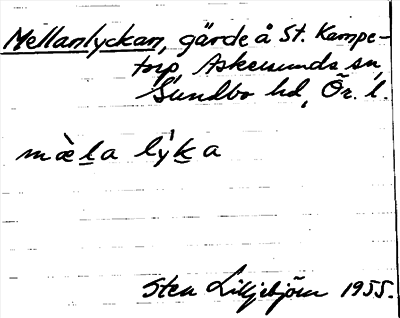 Mellanlyckan, gärde å St. Kampe-
torp, Askersunds sn,
Sundbo hd, Ör. l.
mæ̀la lỳka
Sten Liljebjörn 1955.